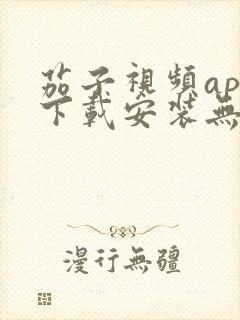 茄子視頻ap
下載安装無
漫行無疆